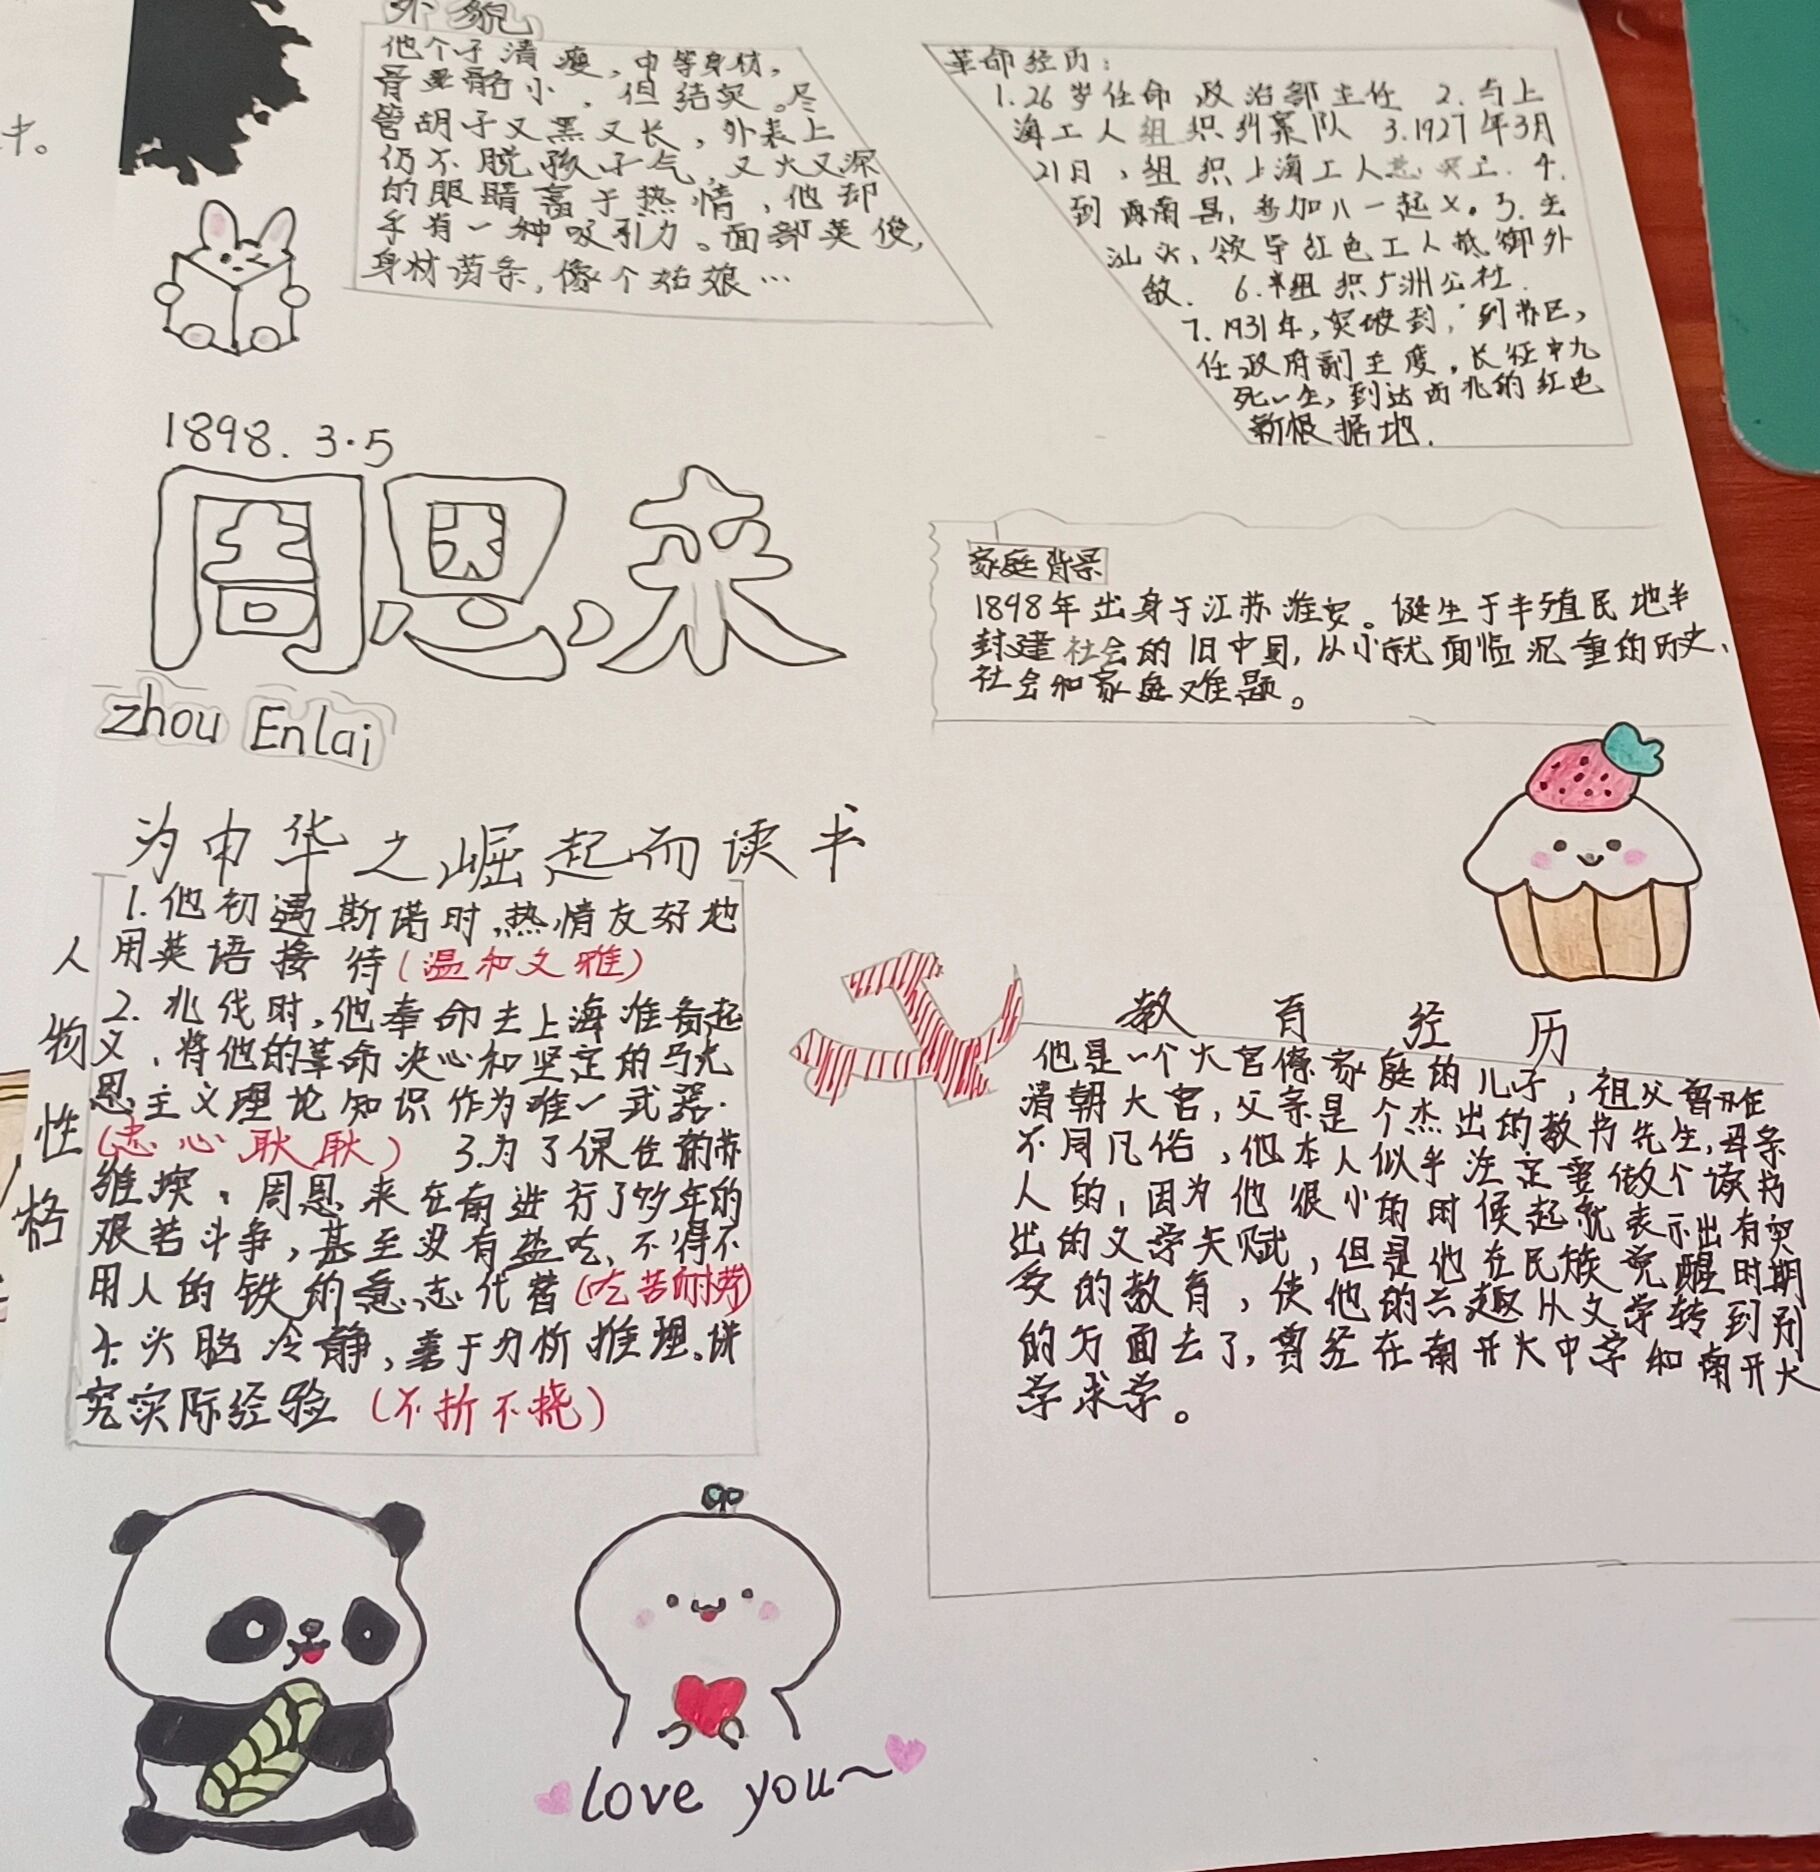 中。
外貌
他个子清瘦，中等身材，
骨骼小，但结实。尽
管胡子又黑又长，外表上
仍不脱孩子气，又大又深
的眼睛富于热情，他却
乎有一种吸引力。面部英俊，
身材苗条，像个姑娘…
革命经历：
1.26岁任命政治部主任 2.与上
海工人组织纠察队 3.1927年3月
21日，组织上海工人 4.
到南昌，参加八一起义。5.去
汕头，领导红色工人抵御外
敌. 6.组织广洲公社.
7.1931年，突破封，到苏区，
任政府副主度，长征中九
死一生，到达西北的红色
新根据地.
1898.3.5
周恩来
zhou Enlai
家庭背景
1898年出身于江苏淮安。诞生于半殖民地半
封建社会的旧中国，从小就面临沉重的历史、
社会和家庭难题。
为中华之崛起而读书
人物性格
1.他初遇斯诺时，热情友好地
用英语接待(温和文雅)
2.北伐时，他奉命去上海准备起
义，将他的革命决心和坚定的马克
思主义理论知识作为唯一武器.
(忠心耿耿) 3.为了保住前苏
维埃，周恩来在南进行了多年的
艰苦斗争，甚至没有盐吃，不得不
用人的铁的意志代替(吃苦耐劳)
4.头脑冷静，善于分析推理。讲
究实际经验(不折不挠)
教育经历
他是一个大官僚家庭的儿子，祖父曾
清朝大官，父亲是个杰出的教书先生，母亲
不同凡俗，他本人似乎注定要做个读书
人的，因为他很小的时候起就表示出有突
出的文学天赋，但是他在民族觉醒时期
受的教育，使他的兴趣从文学转到别
的方面去了，曾经在南开大中学和南开大
学求学。
love you~